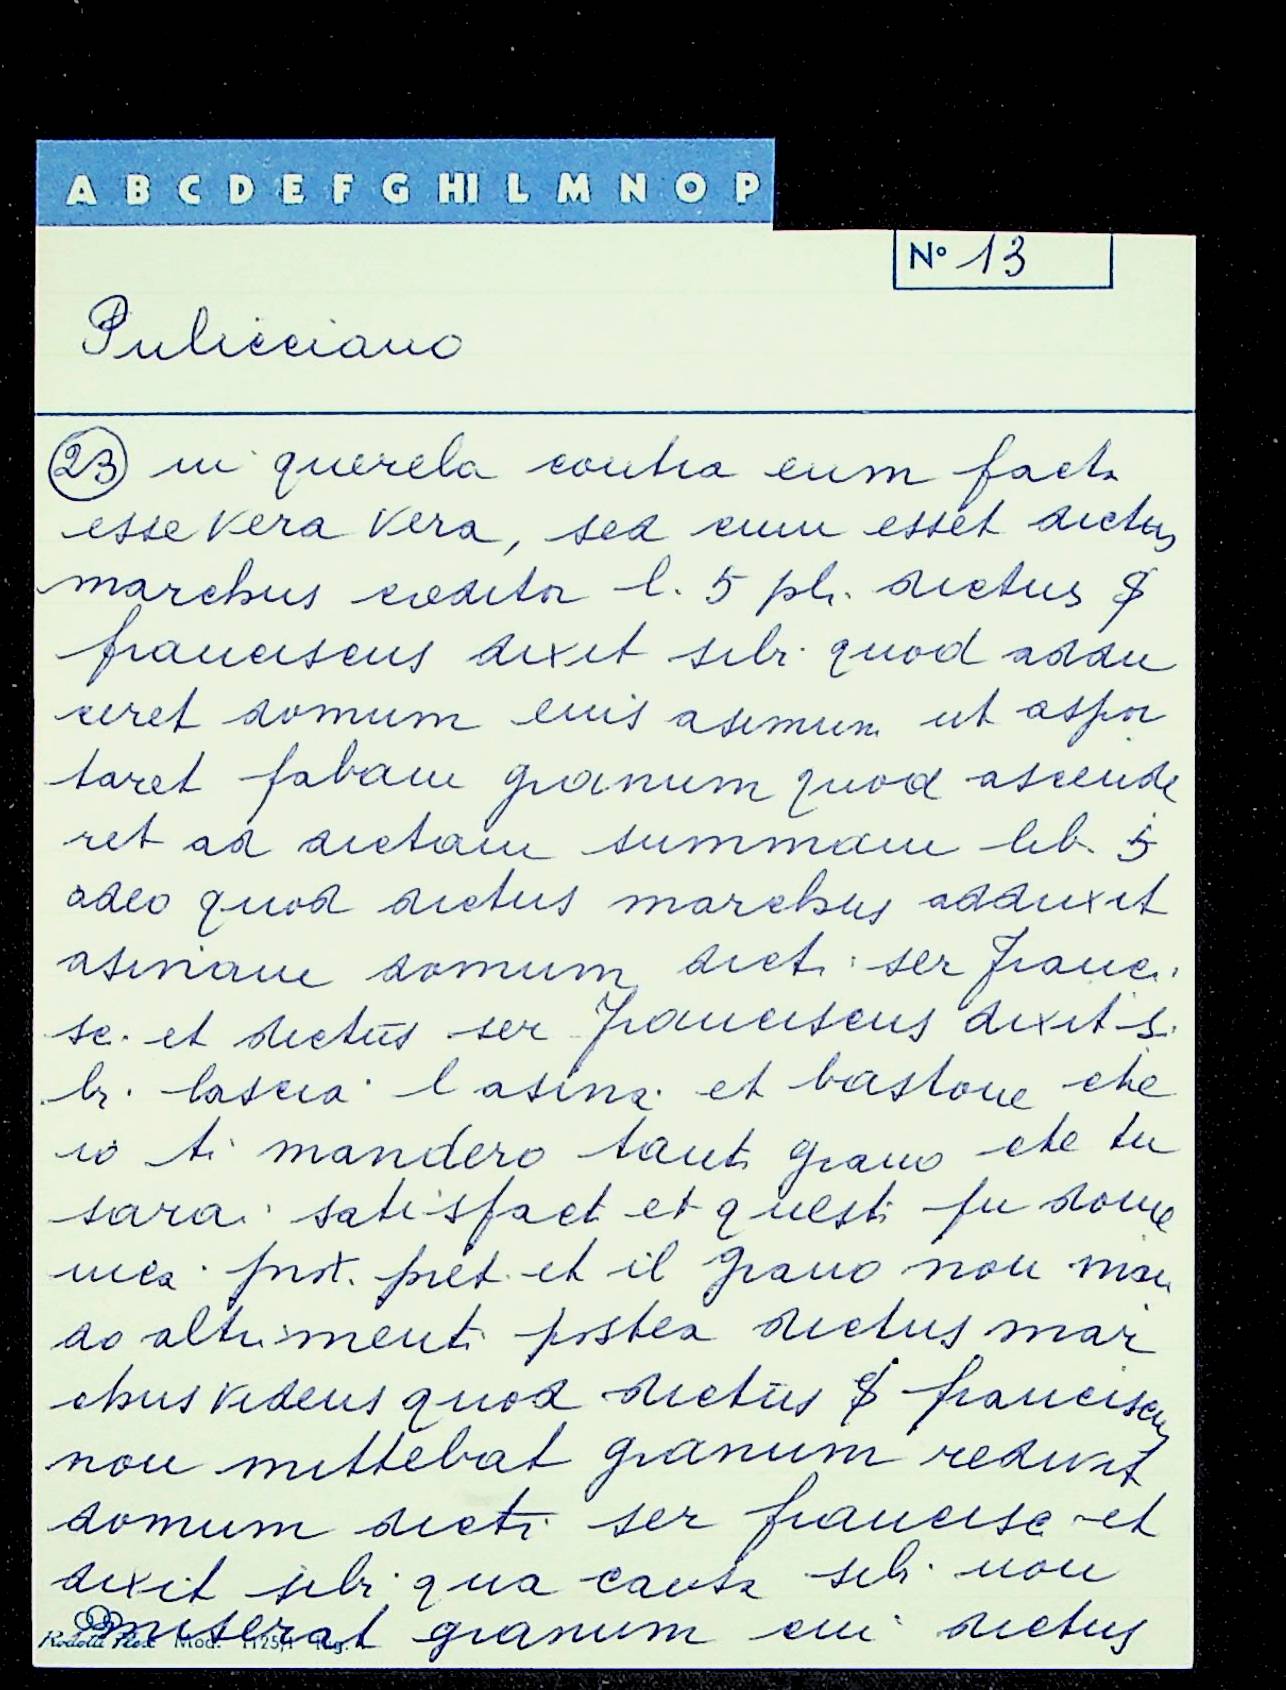 A B C D E F G HI L M N O P
N° 13
Pulicciano
23 in querela contra eum facta
esse vera vera, sed cum esset dictus
marchus creditor l. 5 pli. dictus $
franciscus dixit sibi quod addu
ceret domum eius asinum ut aspor
taret fabam granum quod ascende
ret ad dictam summam lib. 5
adeo quod dictus marchus adduxit
asinam domum dicti ser Franci
sc. et dictus ser Franciscus dixit si
bi. lascia l asina et bastone che
io ti mandero tanti grano che tu
sarai satisfact et questi fu dome
nica prox. pret. et il grano non man
do altrimenti postea dictus mar
chus videns quod dictus $ franciscus
non mittebat granum redivit
domum dicti ser francisc et
dixit sibi qua causa sibi non
miserat granum cui dictus
Mod. 1125/1 Rig.